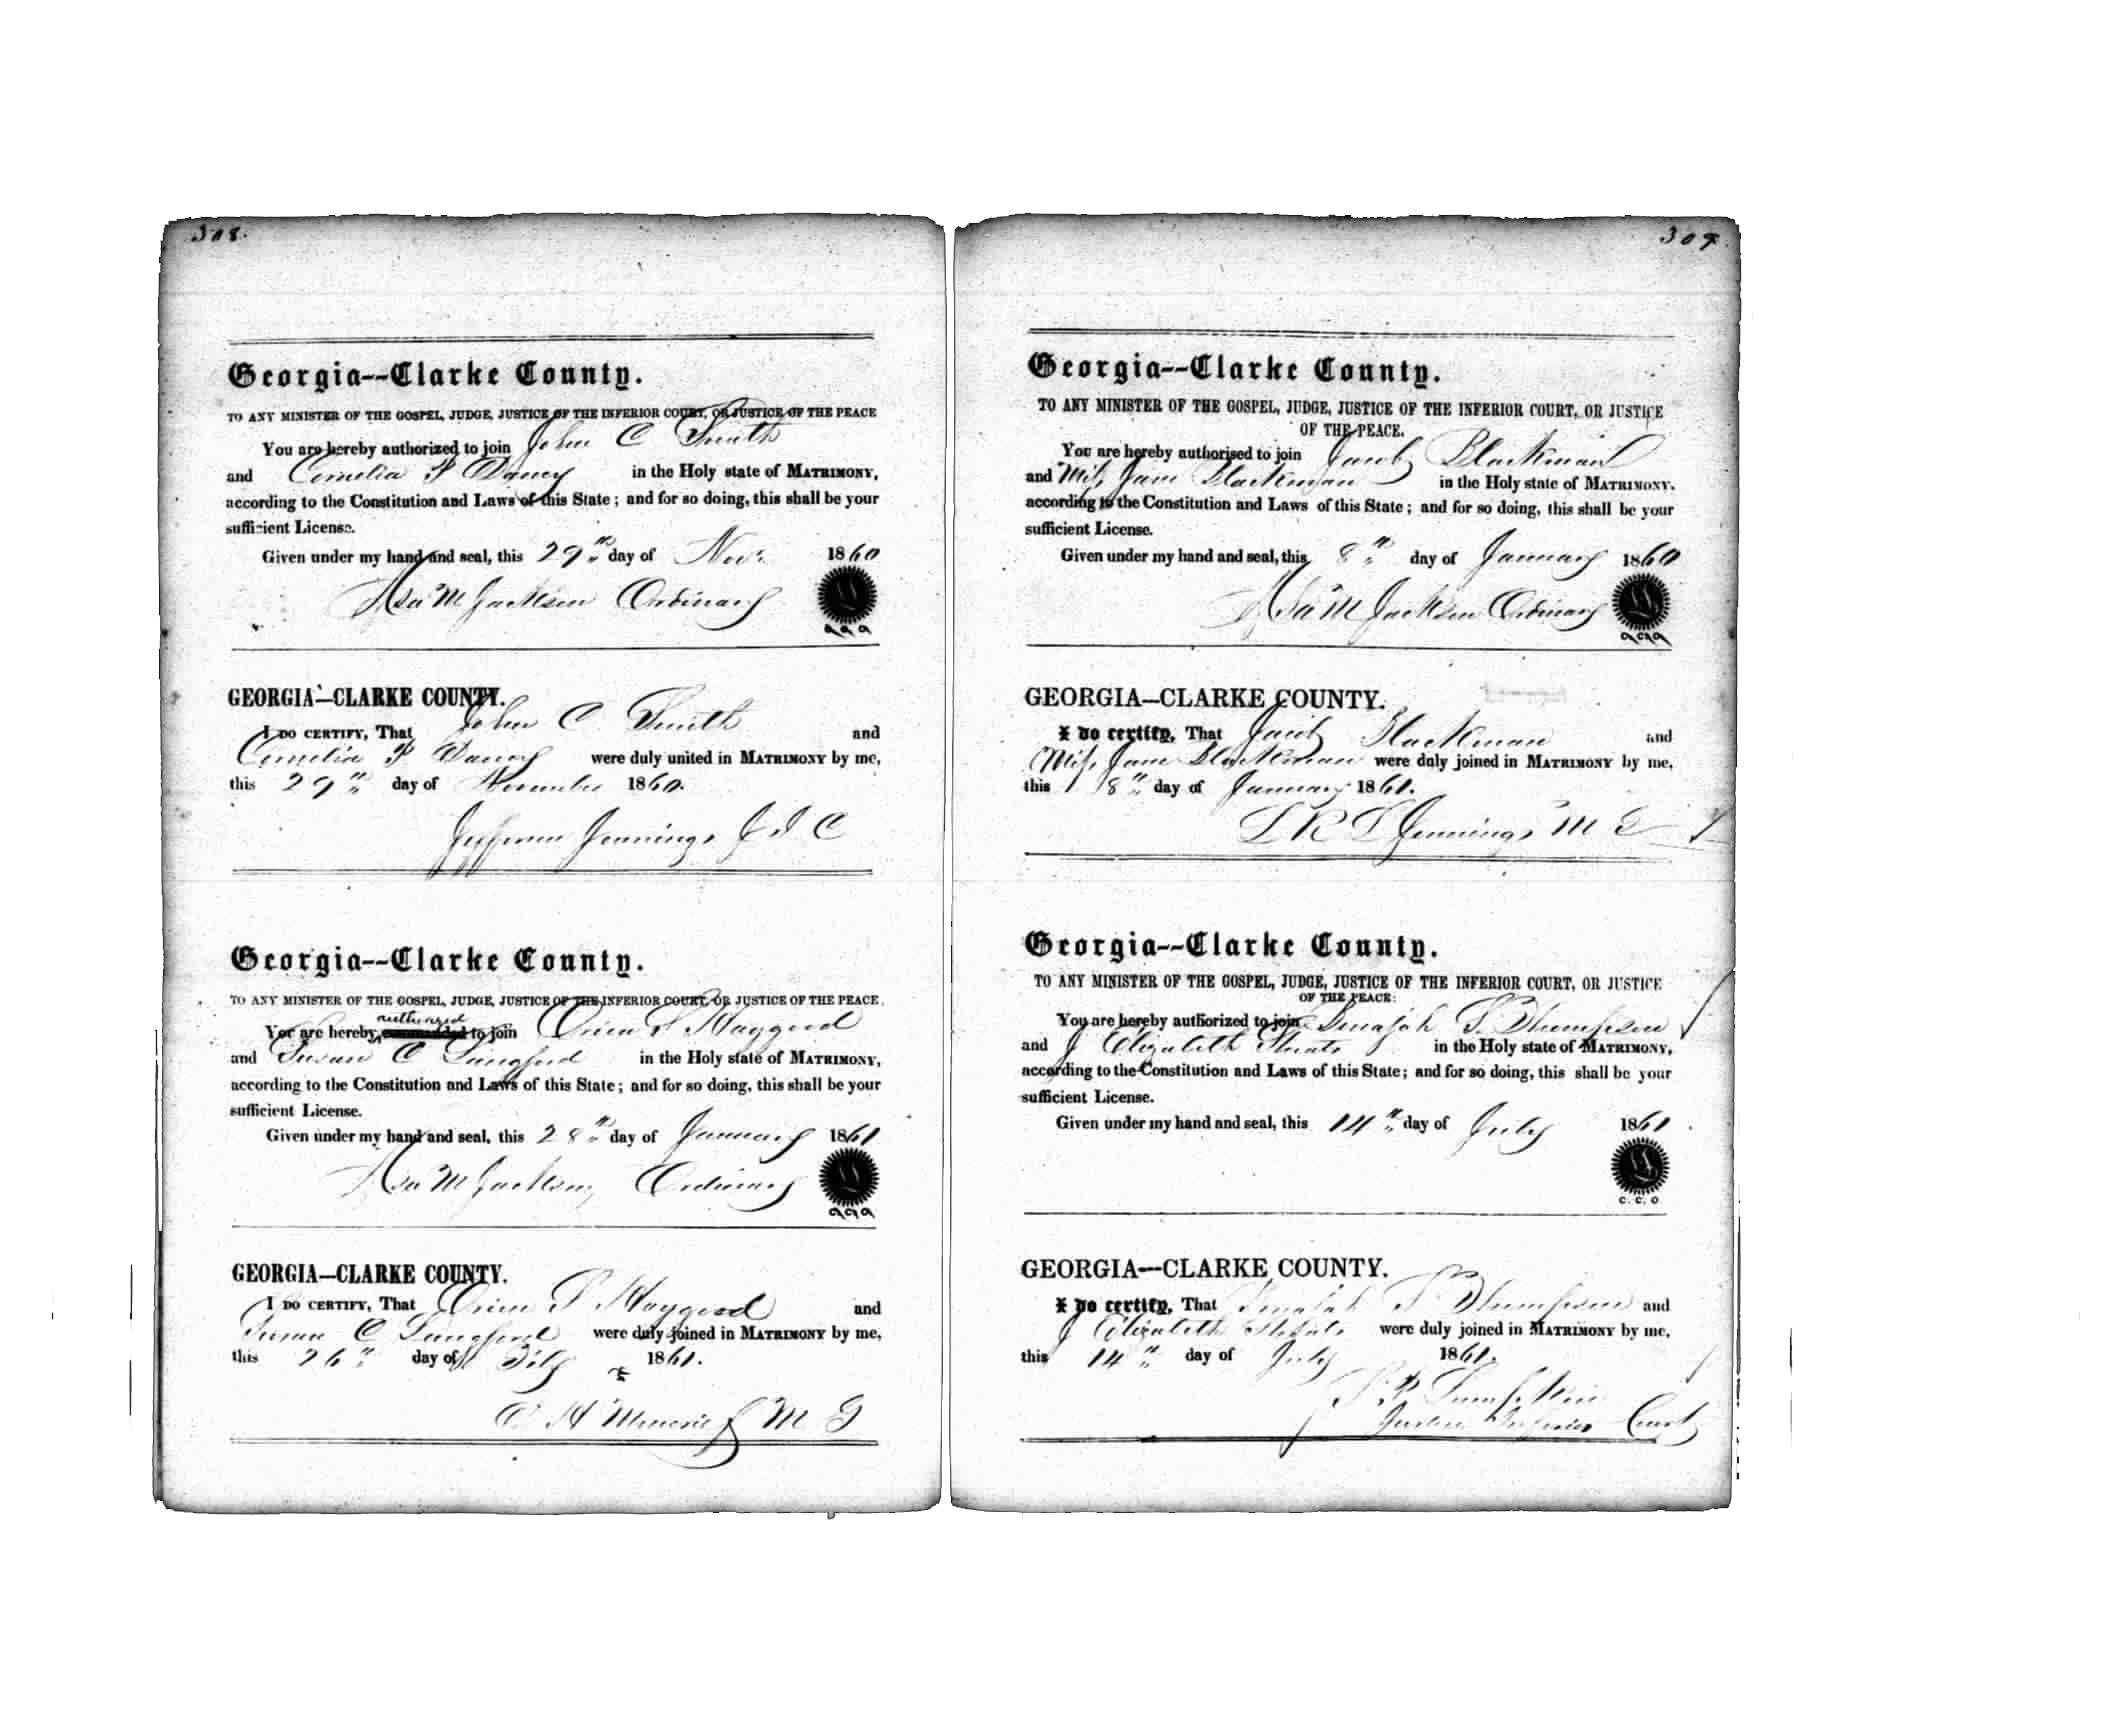 308.
Georgia--Clarke County.
TO ANY MINISTER OF THE GOSPEL, JUDGE, JUSTICE OF THE INFERIOR COURT, OR JUSTICE OF THE PEACE
You are hereby authorized to join John C Smith
and Cornelia P Dancy in the Holy state of MATRIMONY,
according to the Constitution and Laws of this State; and for so doing, this shall be your
sufficient License.
Given under my hand and seal, this 29th day of Nov. 1860
Asa M Jackson Ordinary
GEORGIA—CLARKE COUNTY.
I DO CERTIFY, That John C Smith and
Cornelia P Dancy were duly united in MATRIMONY by me,
this 29th day of November 1860.
Jefferson Jennings J I C
Georgia--Clarke County.
TO ANY MINISTER OF THE GOSPEL, JUDGE, JUSTICE OF THE INFERIOR COURT, OR JUSTICE OF THE PEACE.
authorized
You are hereby to join Haygood
and Susan C Langford in the Holy state of MATRIMONY,
according to the Constitution and Laws of this State; and for so doing, this shall be your
sufficient License.
Given under my hand and seal, this 28th day of January 1861
Asa M Jackson Ordinary
GEORGIA—CLARKE COUNTY.
I DO CERTIFY, That Haygood and
Susan C Langford were duly joined in MATRIMONY by me,
this 26th day of 1861.
M G
309.
Georgia--Clarke County.
TO ANY MINISTER OF THE GOSPEL, JUDGE, JUSTICE OF THE INFERIOR COURT, OR JUSTICE
OF THE PEACE.
You are hereby authorised to join Jacob Blackman
and Miss Jane Blackman in the Holy state of MATRIMONY,
according to the Constitution and Laws of this State; and for so doing, this shall be your
sufficient License.
Given under my hand and seal, this 8th day of January 1860
Asa M Jackson Ordinary
GEORGIA—CLARKE COUNTY.
I do certify, That Jacob Blackman and
Miss Jane Blackman were duly joined in MATRIMONY by me,
this 8th day of January 1861.
L R L Jennings M G
Georgia--Clarke County.
TO ANY MINISTER OF THE GOSPEL, JUDGE, JUSTICE OF THE INFERIOR COURT, OR JUSTICE
OF THE PEACE:
You are hereby authorized to join Benajah S Thompson
and J Elizabeth in the Holy state of MATRIMONY,
according to the Constitution and Laws of this State; and for so doing, this shall be your
sufficient License.
Given under my hand and seal, this 14th day of July 1861
C. C. O.
GEORGIA—CLARKE COUNTY.
I do certify, That Benajah S Thompson and
J Elizabeth were duly joined in MATRIMONY by me,
this 14th day of July 1861.
Lumpkin
Justice Inferior Court